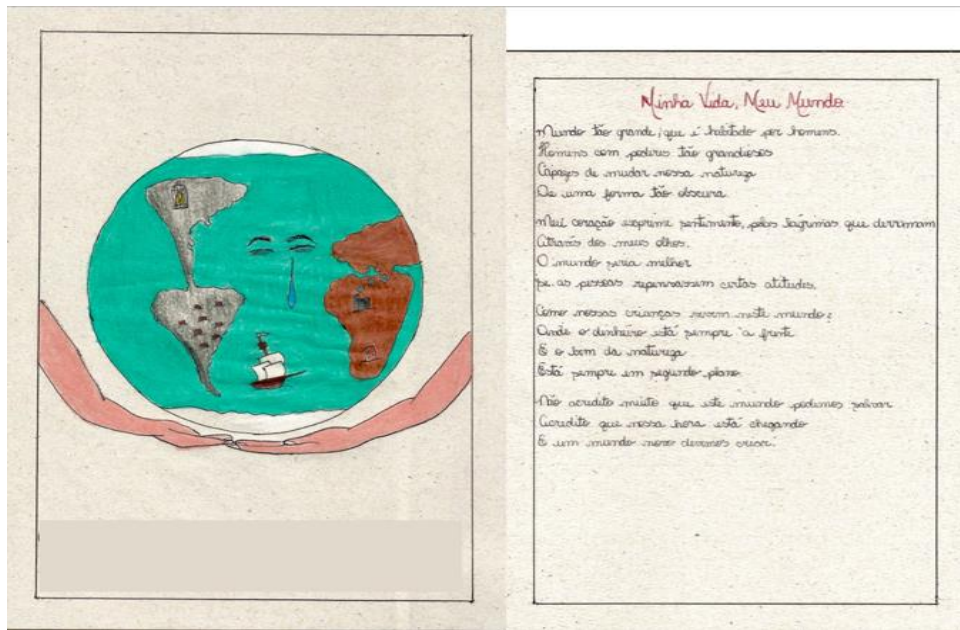 Minha Vida, Meu Mundo
Mundo tão grande, que é habitado por homens.
Homens com poderes tão grandiosos
Capazes de mudar nossa natureza
De uma forma tão obscura.
Meu coração exprime sentimento, pelas lágrimas que derramam
Através dos meus olhos.
O mundo seria melhor
se as pessoas repensassem certas atitudes.
Como nossas crianças vivem neste mundo:
Onde o dinheiro está sempre à frente
E o bem da natureza
Está sempre em segundo plano.
Não acredito muito que este mundo podemos salvar
Acredito que nossa hora está chegando
E um mundo novo devemos